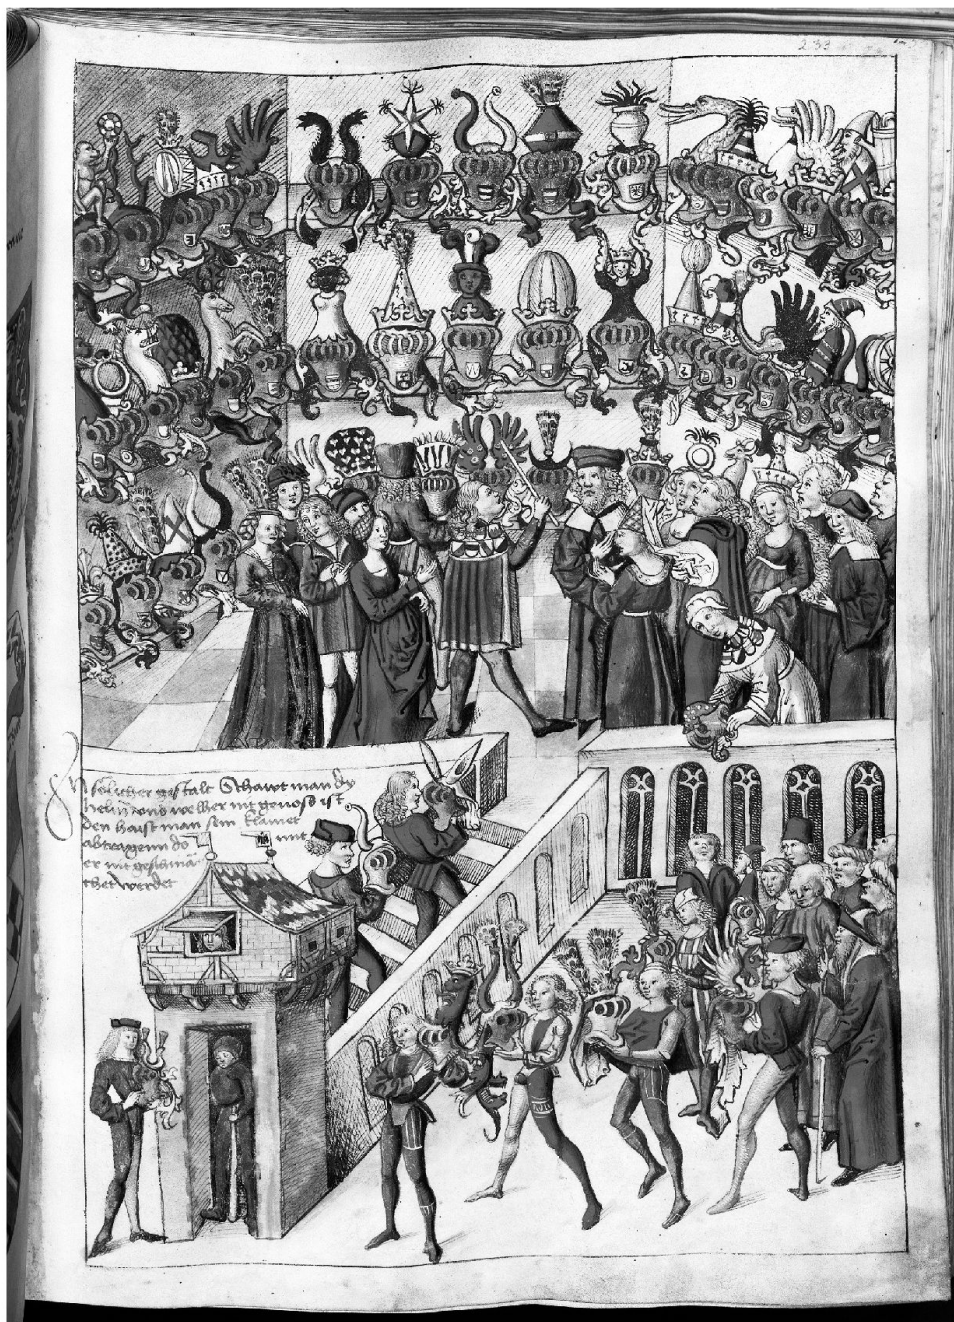 233
In sölicher gestalt Schawt man dy
helm vnd welher nit genoss ist
den haist man sein klainet
abtragenn do mit
er nit geschmä
chet werdet